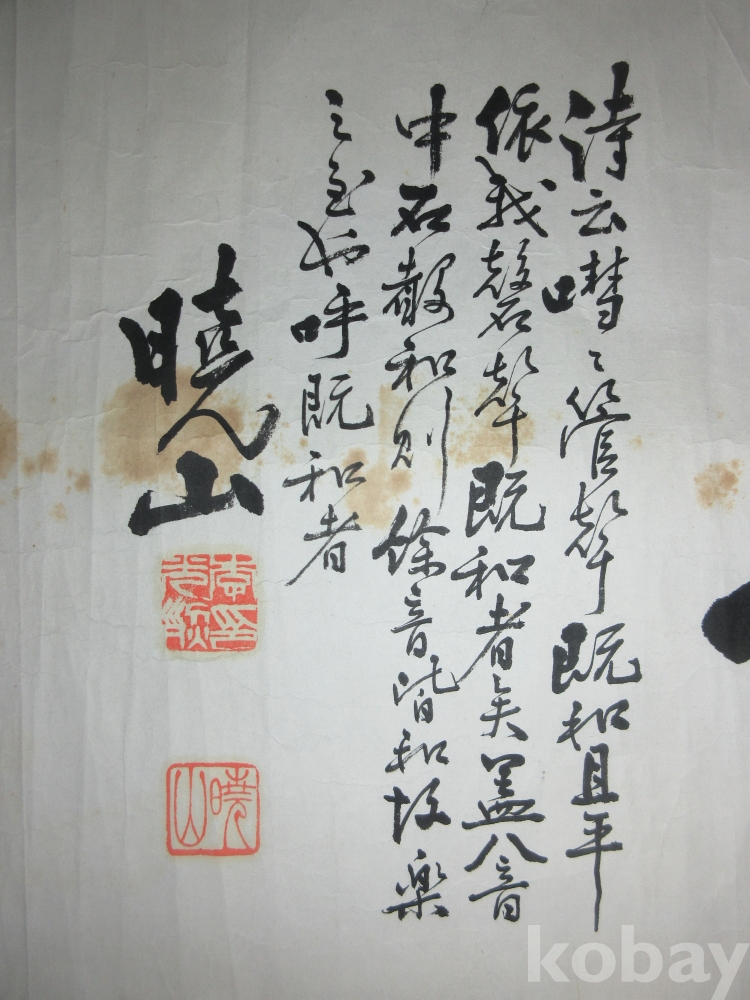 詩云嘒〻管聲既和且平
依我磬聲既和者矣盖八音
中石聲和則餘音諧和故樂
之至也呼既和者
曉山
曉山
kobay